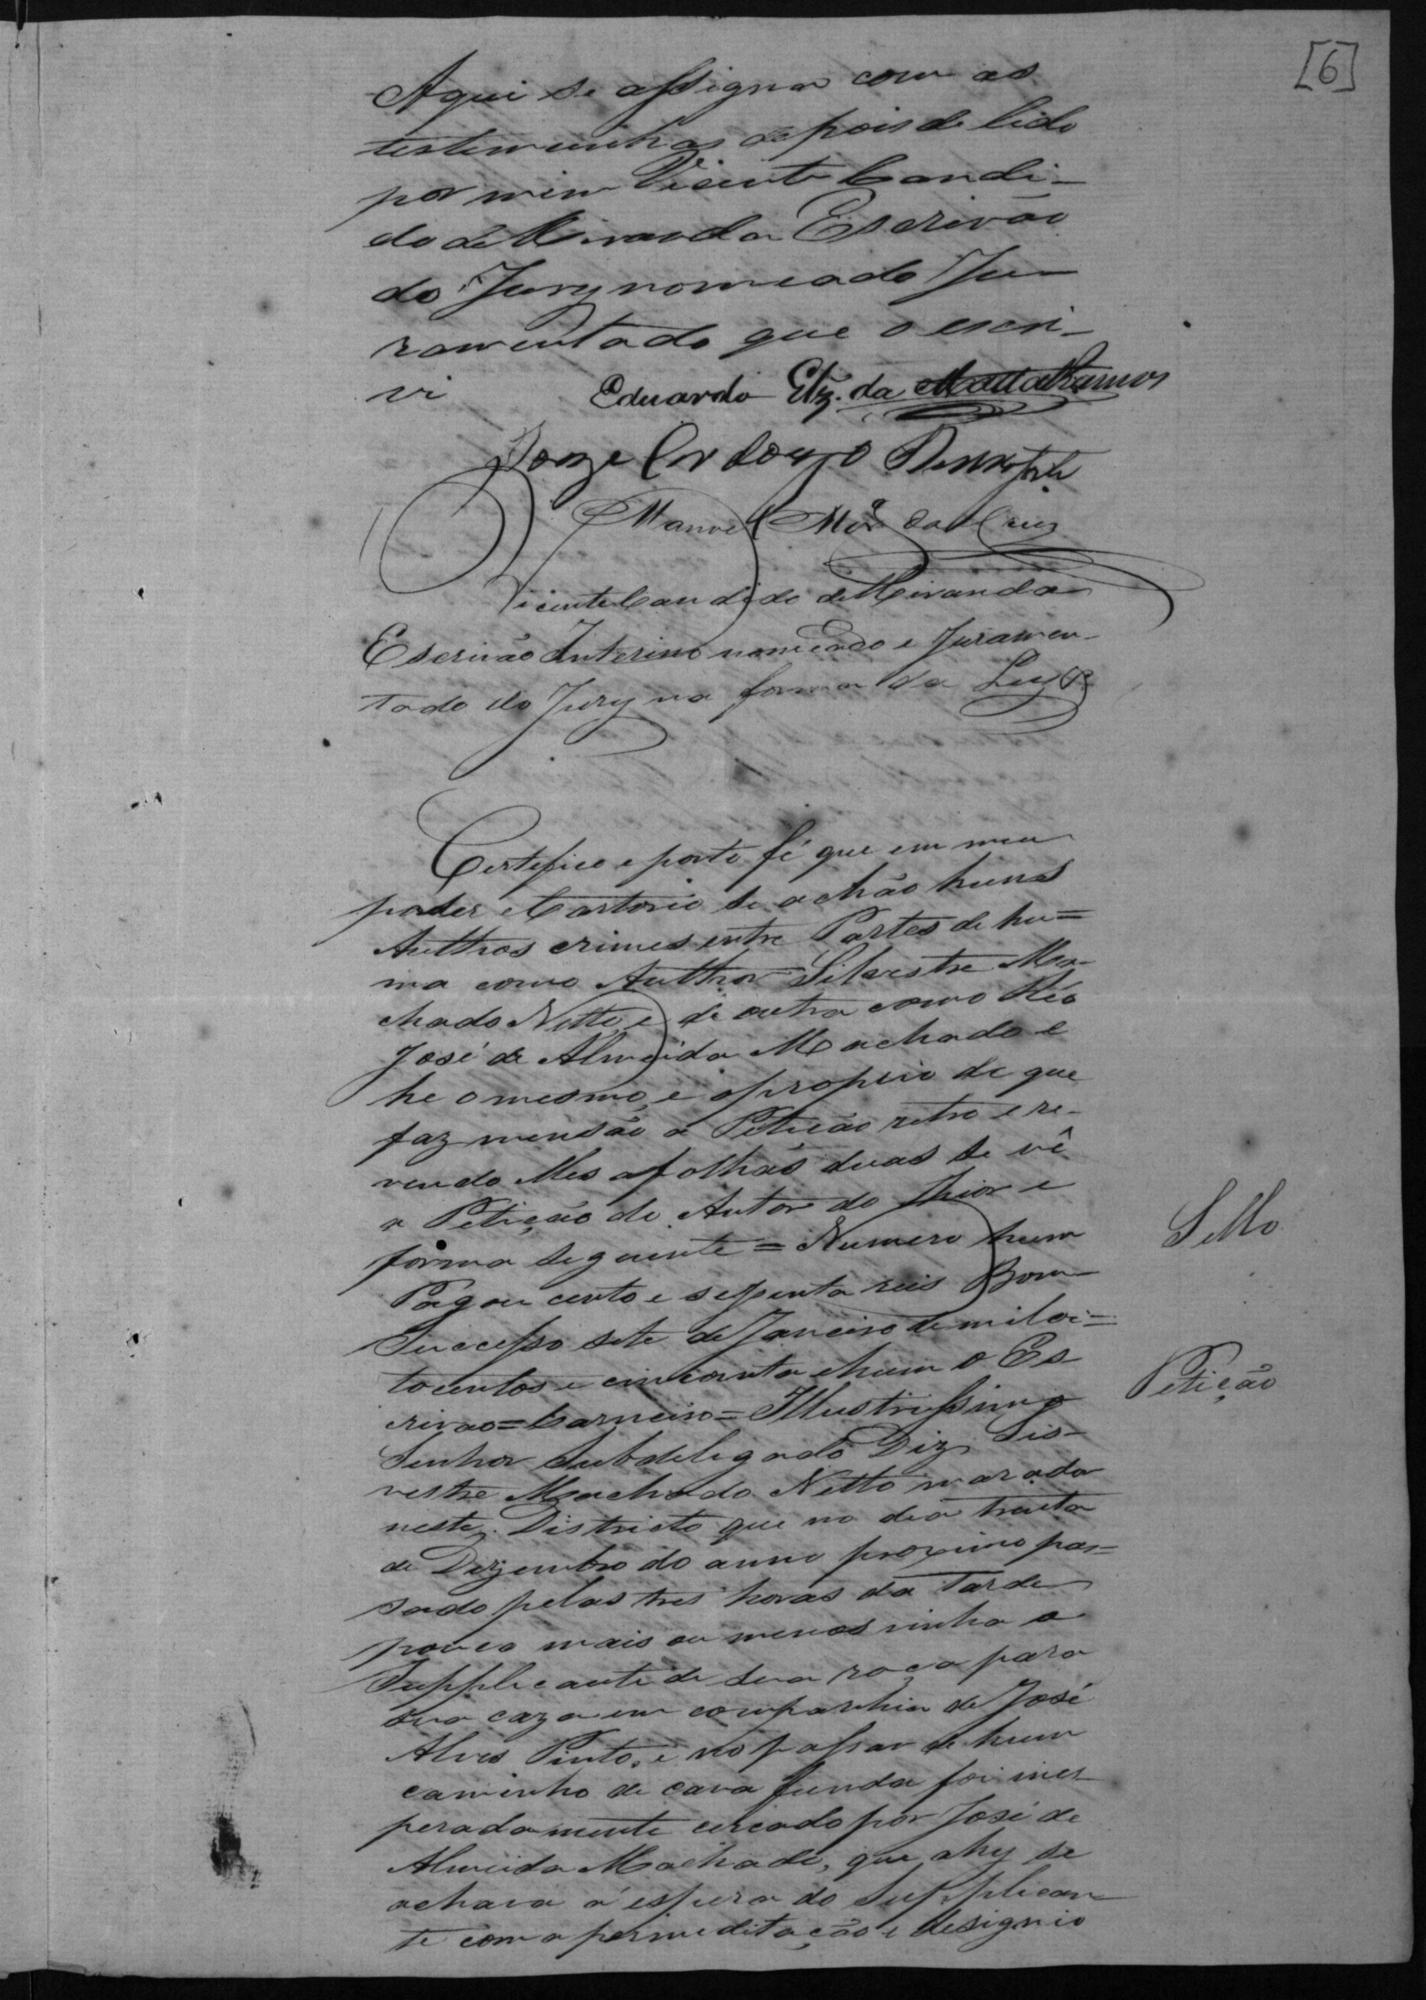 [6]
Aqui se assignar com as
testemunhas depois de lido
por mim Vicente Candi-
do de Miranda Escrivão
do Jury nomeado Ju-
ramentado que o escri-
vi
Eduardo Elz. da Matta Ramos
Jorze Cardozo
Manoel Mor.ª da Cruz
Vicente Candido de Miranda
Escrivão Interino nomeado e Juramen-
tado do Jury na forma da Ley
Certefico e porto fé que em meu
poder e Cartorio se achão huns
Authos crimes entre Partes de hu=
ma como Author Silvestre Ma-
chado Netto, e de outra como Réo
José de Almeida Machado e
he o mesmo, e o proprio de que
faz mensão a Petição retro e re-
vendo Mes a folhas duas se vê
a Petição do Autor do theor e
forma seguente = Numero hum
Pagou cento e sessenta reis Bom
Successo sete de Janeiro de mil oi=
tocentos e cincoenta e hum O Es
crivao = Carneiro = Illustrissimo
Senhor Subdelegado Diz Sil-
vestre Machado Netto morador
neste Districto que no dia trinta
de Dezembro do anno proximo pas=
sado pelas tres horas da tarde
pouco mais ou menos vinha o
Supplicante de sua roça para
sua caza em companhia de José
Alves Pinto, e no passar de hum
caminho de cava funda foi ines-
peradamente cercado por José de
Almeida Machado, que ahy se
achava á espera do Supplican-
te com a permeditação e designio
Sello
Petição